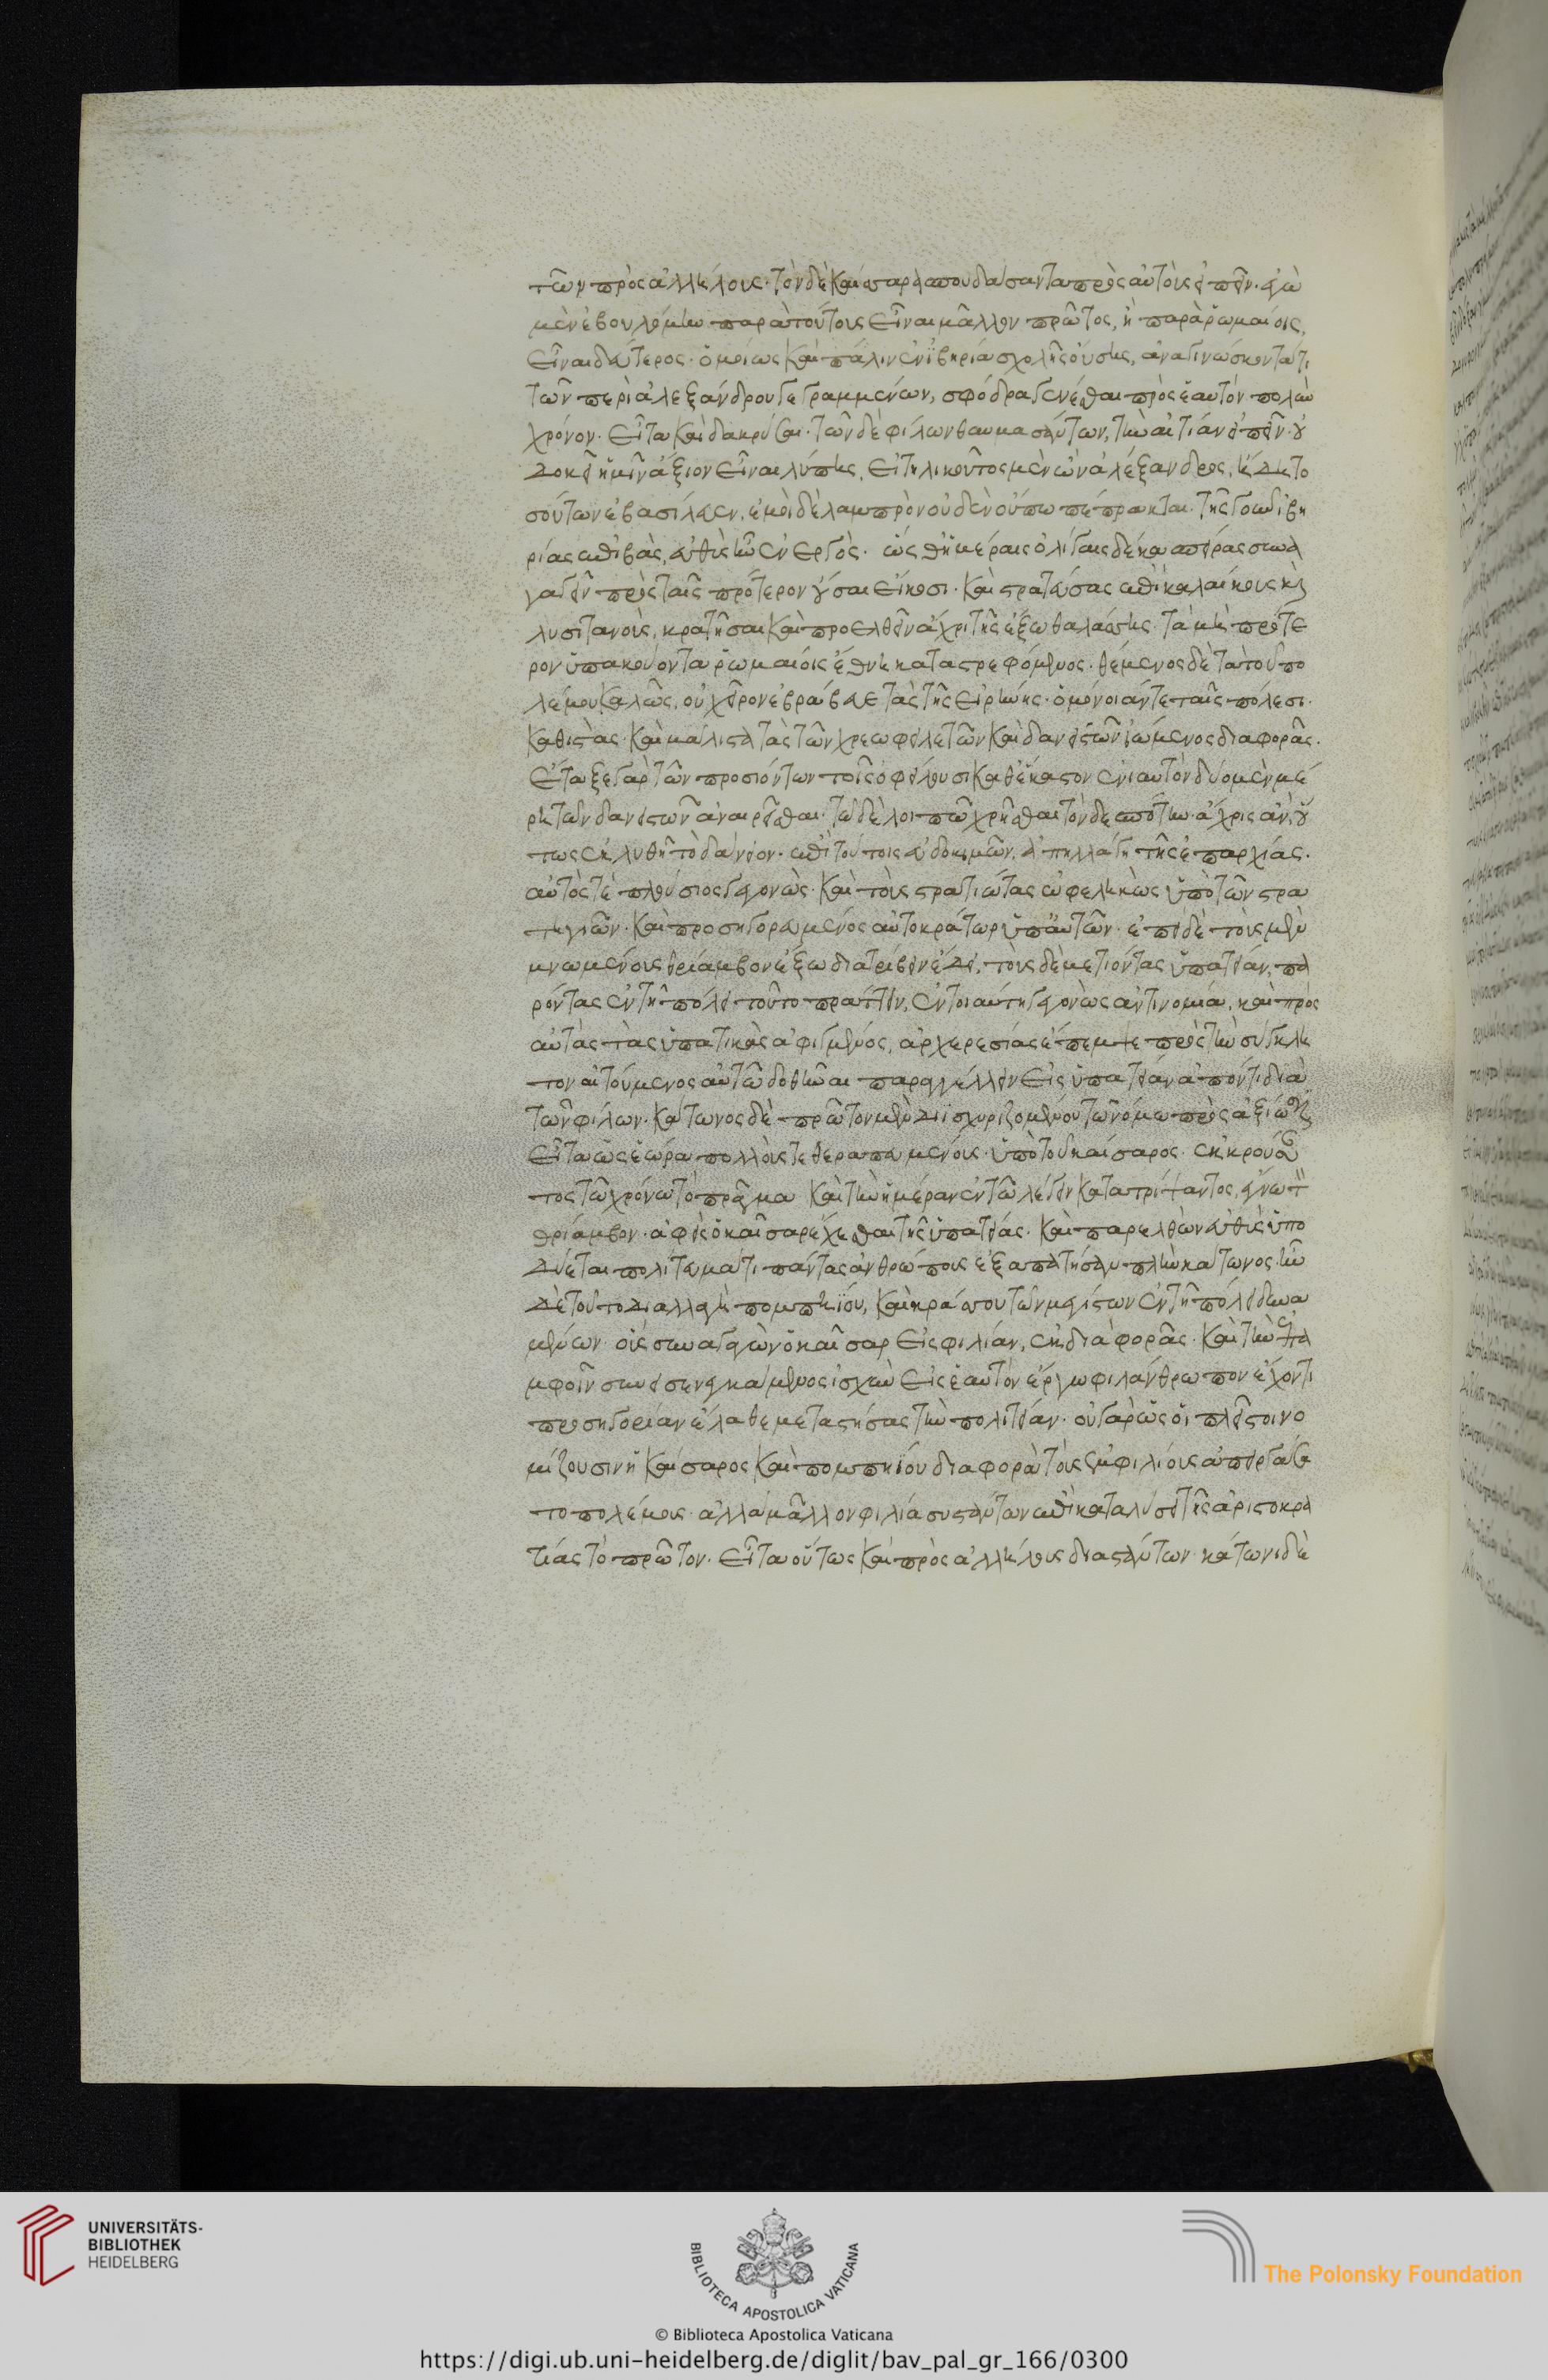 τῶν πρὸς ἀλλήλους· τὸν δὲ καίσαρα σπουδάσαντα πρὸς αὐτοὺς εἰπεῖν· ἐγὼ
μὲν ἐβουλόμην παρὰ τούτοις εἶναι μᾶλλον πρῶτος, ἢ παρὰ ῥωμαίοις,
εἶναι δεύτερος· ὁμοίως καὶ πάλιν ἐν ἰβηρία σχολῆς οὔσης, ἀναγινώσκοντά τι
τῶν περὶ ἀλεξάνδρου γεγραμμένων, σφόδρα γενέσθαι πρὸς ἑαυτὸν πολὺν
χρόνον· εἶτα καὶ δακρύσαι· τῶν δὲ φίλων θαυμασάντων, τὴν αἰτίαν εἰπεῖν· οὐ
δοκεῖ ἡμῖν ἄξιον εἶναι λύπης, εἰ τηλικοῦτος μὲν ὢν ἀλέξανδρος, ἤδη το
σούτων ἐβασίλευεν, ἐμοὶ δὲ λαμπρὸν οὐδὲν οὔπω πέπρακται· τῆς γοῦν ἰβη
ρίας ἐπιβὰς, εὐθὺς ἦν ἐνεργός· ὥσθ' ἡμέραις ὀλίγαις δέκα σπείρας συνα
γαγεῖν πρὸς ταῖς πρότερον οὔσαι εἴκοσι· καὶ στρατεύσας ἐπὶ καλαίκους καὶ
λυσιτανοὺς, κρατῆσαι καὶ προελθεῖν ἄχρι τῆς ἔξω θαλάσσης· τὰ μὴ πρότε
ρον ὑπακούοντα ῥωμαίοις ἔθνη καταστρεφόμενος· θέμενος δὲ τὰ τοῦ πο
λέμου καλῶς, οὐ χεῖρον ἐβράβευε τὰς τῆς εἰρήνης· ὁμόνοιάν τε ταῖς πόλεσι·
καθιστὰς· καὶ μάλιστα τὰς τῶν χρεωφειλετῶν καὶ δανειστῶν ἰώμενος διαφορᾶς·
ἔταξε γὰρ τῶν προσιόντων τοῖς ὀφείλουσι καθ' ἕκαστον ἐνιαυτὸν δύο μὲν μέ
ρη τῶν δανειστῶν ἀναιρεῖσθαι· τῶ δὲ λοιπῶ χρῆσθαι τὸν δεσπότην· ἄχρις ἂν οὕ
τως ἐκλυθῆ τὸ δάνειον· ἐπὶ τούτοις εὐδοκιμῶν, ἀπηλλάγη τῆς ἐπαρχίας·
αὐτός τε πλούσιος γεγονὼς· καὶ τοὺς στρατιώτας ὠφεληκὼς ὑπὸ τῶν στρα
τηγιῶν· καὶ προσηγορευμένος αὐτοκράτωρ ὑπ' αὐτῶν· ἐπεὶ δὲ τοὺς μὲν
μνωμένους θρίαμβον ἔξω διατρίβειν ἔδει, τοὺς δὲ μετιόντας ὑπατείαν, πα
ρόντας ἐν τῆ πόλει τοῦτο πράττειν, ἐν τοιαύτη γεγονὼς ἀντινομία, καὶ πρὸς
αὐτὰς τὰς ὑπατικὰς ἀφιγμένος, ἀρχερεσίας ἔπεμψε πρὸς τὴν σύγκλη
τον αἰτούμενος αὐτῶ δοθῆναι παραγγέλλειν εἰς ὑπατείαν ἀπόντι διὰ
τῶν φίλων· κάτωνος δὲ πρῶτον μὲν διϊσχυριζομένου τῶ νόμω πρὸς ἀξίωσιν
εἶτα ὡς ἑώρα πολλοὺς τεθεραπευμένους ὑπὸ τοῦ καίσαρος· ἐκκρούσαν
τος τῶ χρόνω τὸ πρᾶγμα καὶ τὴν ἡμέραν ἐν τῶ λέγειν κατατρίψαντος, ἔγνω τὸν
θρίαμβον· ἀφεὶς ὁ καῖσαρ ἔχεσθαι τῆς ὑπατείας· καὶ παρελθὼν εὐθὺς ὑπο
δύεται πολίτευμά τι πάντας ἀνθρώπους ἐξαπατῆσαν πλὴν κάτωνος· ἦν
δὲ τοῦτο διαλλαγὴ πομπηΐου, καὶ κράσσου τῶν μεγίστων ἐν τῆ πόλει δυνα
μένων· οὓς συναγαγὼν ὁ καῖσαρ εἰς φιλίαν, ἐκ διαφορᾶς· καὶ τὴν ἀπ' ἀ
μφοῖν συνεσενεγκάμενος ἰσχὺν εἰς ἑαυτὸν ἔργω φιλάνθρωπον ἔχοντι
προσηγορίαν ἔλαθε μεταστήσας τὴν πολιτείαν· οὐ γὰρ ὡς οἱ πλεῖστοι νο
μίζουσιν ἡ καίσαρος καὶ πομπηΐου διαφορὰ τοὺς ἐμφιλίους ἀπειργάσα
το πολέμους· ἀλλὰ μᾶλλον φιλία συστάντων ἐπὶ καταλύσει τῆς ἀριστοκρα
τίας τὸ πρῶτον· εἶτα οὕτως καὶ πρὸς ἀλλήλους διαστάντων· κάτωνι δὲ
UNIVERSITÄTS-
BIBLIOTHEK
HEIDELBERG
BIBLIOTECA APOSTOLICA VATICANA
The Polonsky Foundation
© Biblioteca Apostolica Vaticana
https://digi.ub.uni-heidelberg.de/diglit/bav_pal_gr_166/0300